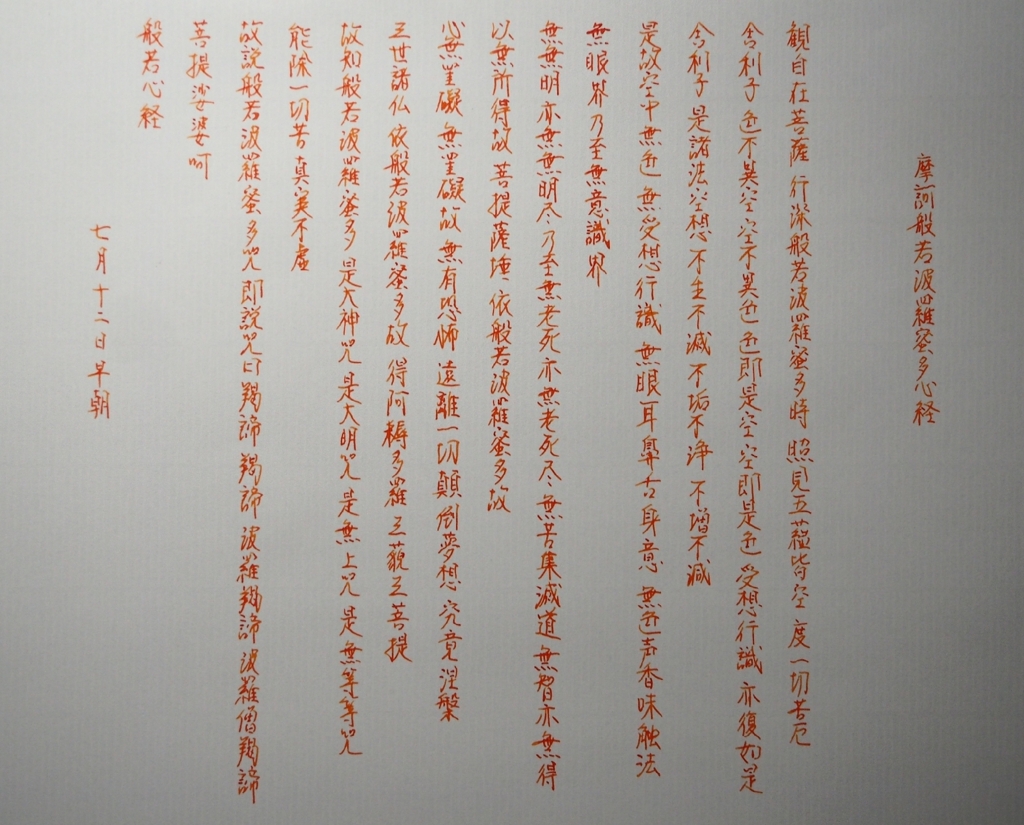 摩訶般若波羅蜜多心経
観自在菩薩 行深般若波羅蜜多時 照見五蘊皆空 度一切苦厄
舎利子 色不異空 空不異色 色即是空 空即是色 受想行識 亦復如是
舎利子 是諸法空想 不生不滅 不垢不浄 不増不減
是故空中無色 無受想行識 無眼耳鼻舌身意 無色声香味触法
無眼界 乃至無意識界
無無明 亦無無明尽 乃至無老死 亦無老死尽 無苦集滅道 無智亦無得
以無所得故 菩提薩埵 依般若波羅蜜多故
心無罣礙 無罣礙故 無有恐怖 遠離一切顛倒夢想 究竟涅槃
三世諸仏 依般若波羅蜜多故 得阿耨多羅三藐三菩提
故知般若波羅蜜多 是大神咒 是大明咒 是無上咒 是無等等咒
能除一切苦 真実不虚
故説般若波羅蜜多咒 即説咒曰 羯諦 羯諦 波羅羯諦 波羅僧羯諦
菩提娑婆呵
般若心経
七月十二日早朝